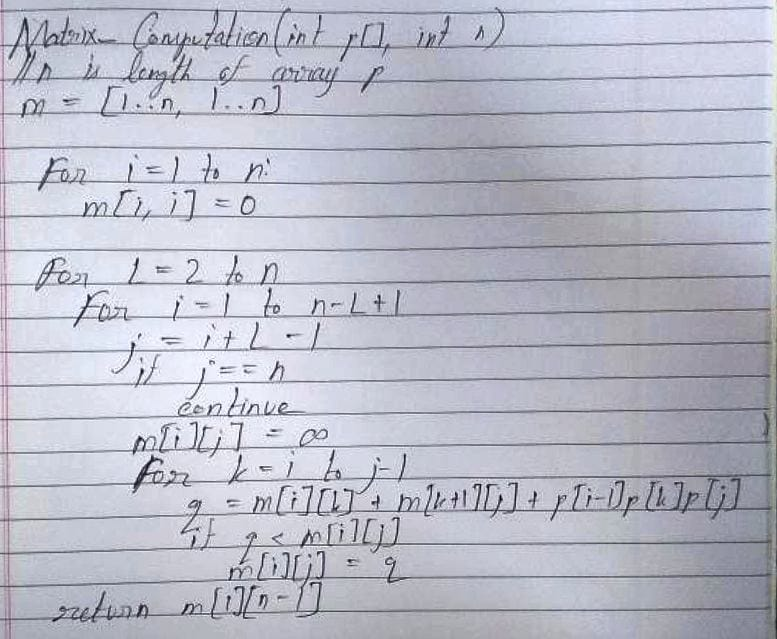 Matrix-Computation(int p[], int n)
//n is length of array p
m = [1..n, 1..n]
For i=1 to n:
m[i, i] = 0
For L = 2 to n
For i = 1 to n-L+1
j = i+L-1
if j == n
continue
m[i][j] = ∞
For k = i to j-1
q = m[i][k] + m[k+1][j] + p[i-1]p[k]p[j]
if q < m[i][j]
m[i][j] = q
return m[1][n-1]